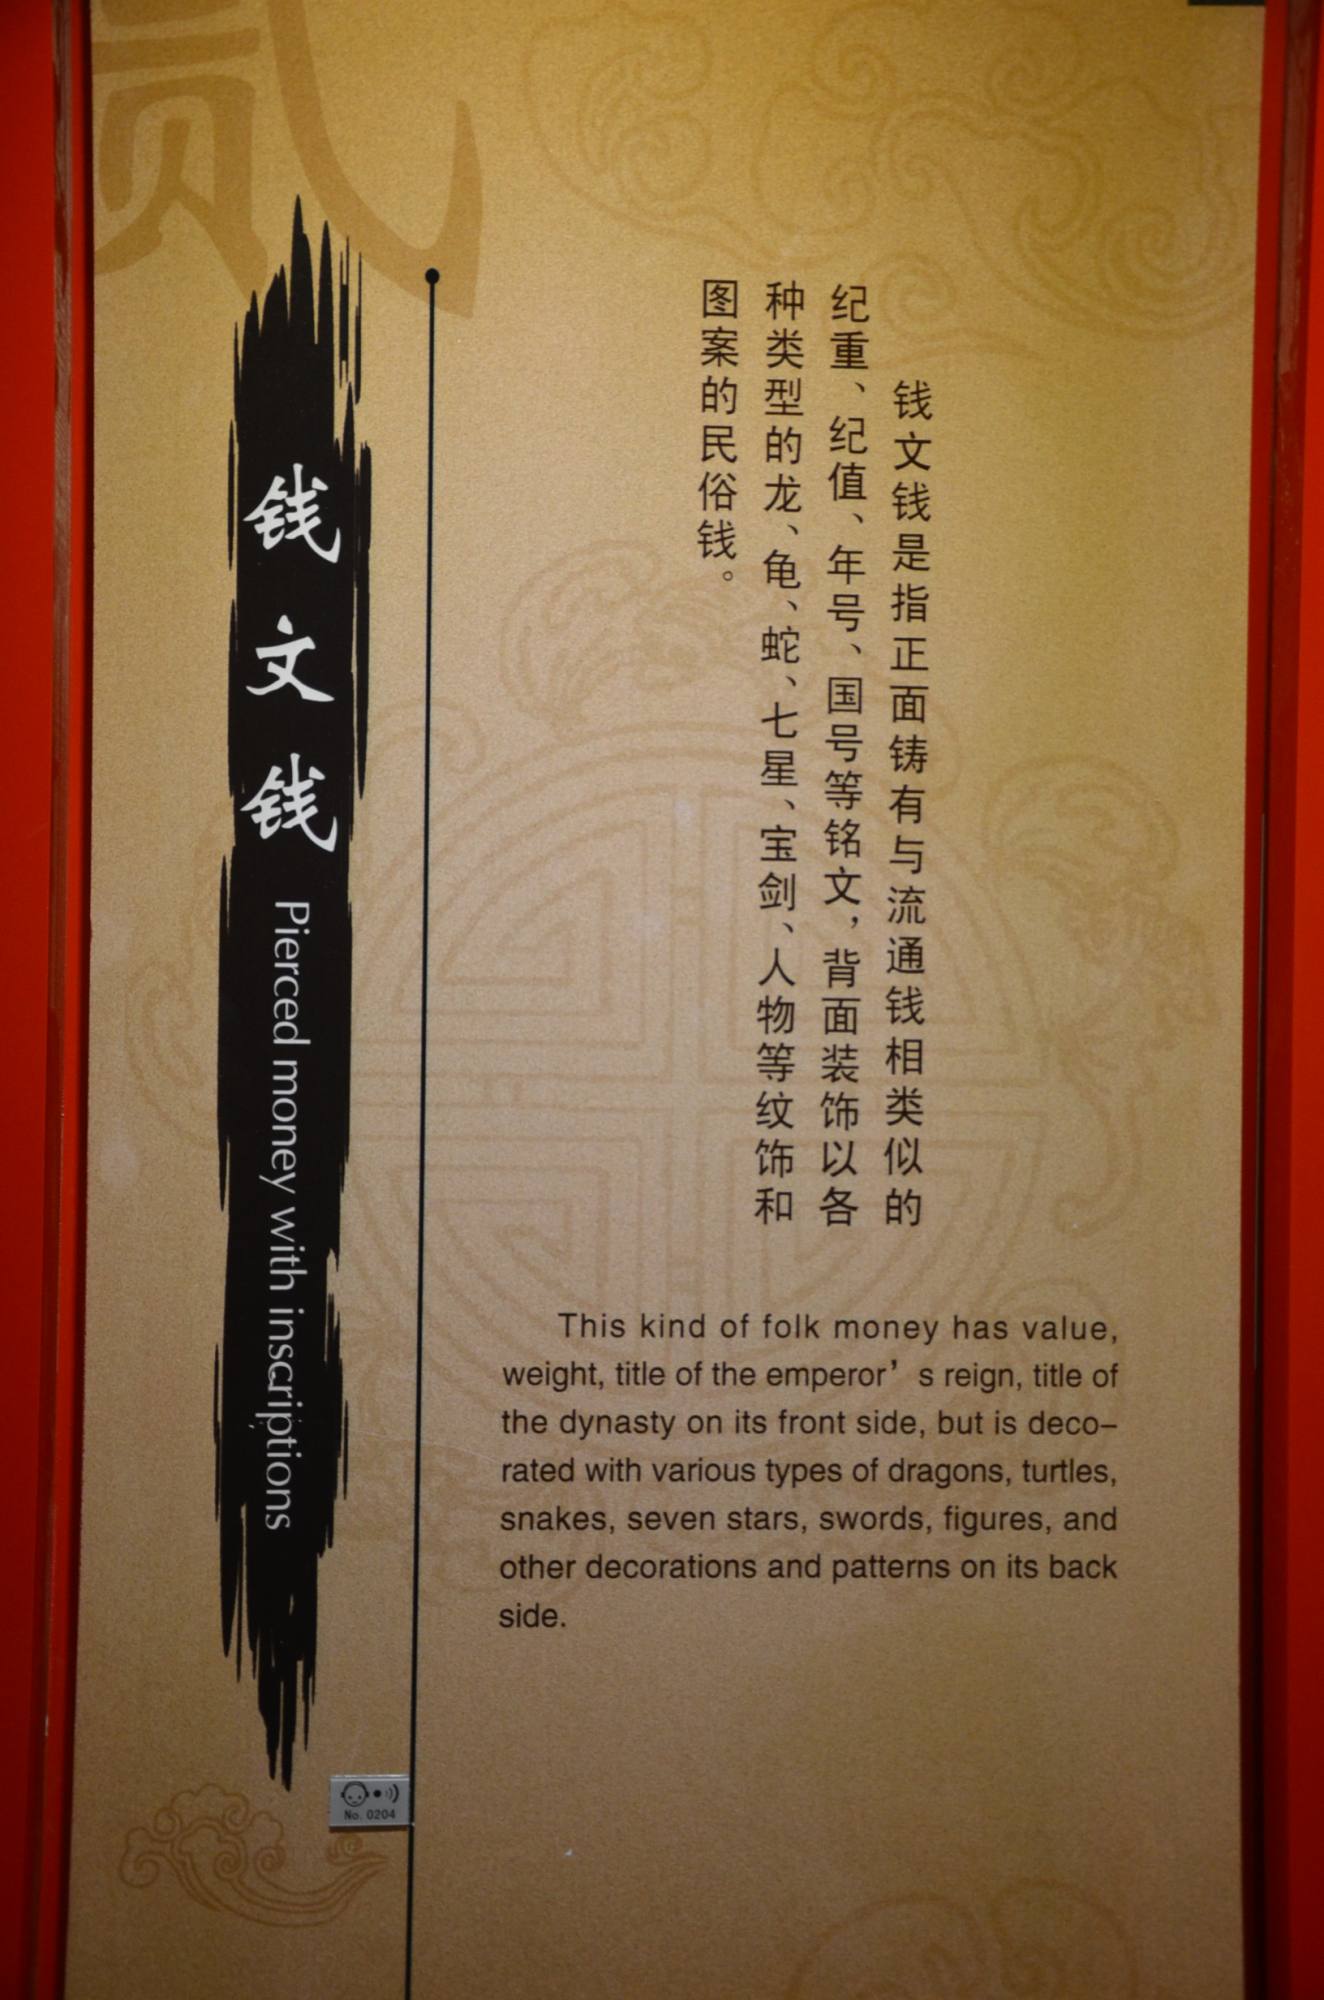 贰
钱文钱 Pierced money with inscriptions
钱文钱是指正面铸有与流通钱相类似的
纪重、纪值、年号、国号等铭文，背面装饰以各
种类型的龙、龟、蛇、七星、宝剑、人物等纹饰和
图案的民俗钱。
This kind of folk money has value,
weight, title of the emperor’ s reign, title of
the dynasty on its front side, but is deco–
rated with various types of dragons, turtles,
snakes, seven stars, swords, figures, and
other decorations and patterns on its back
side.
No. 0204